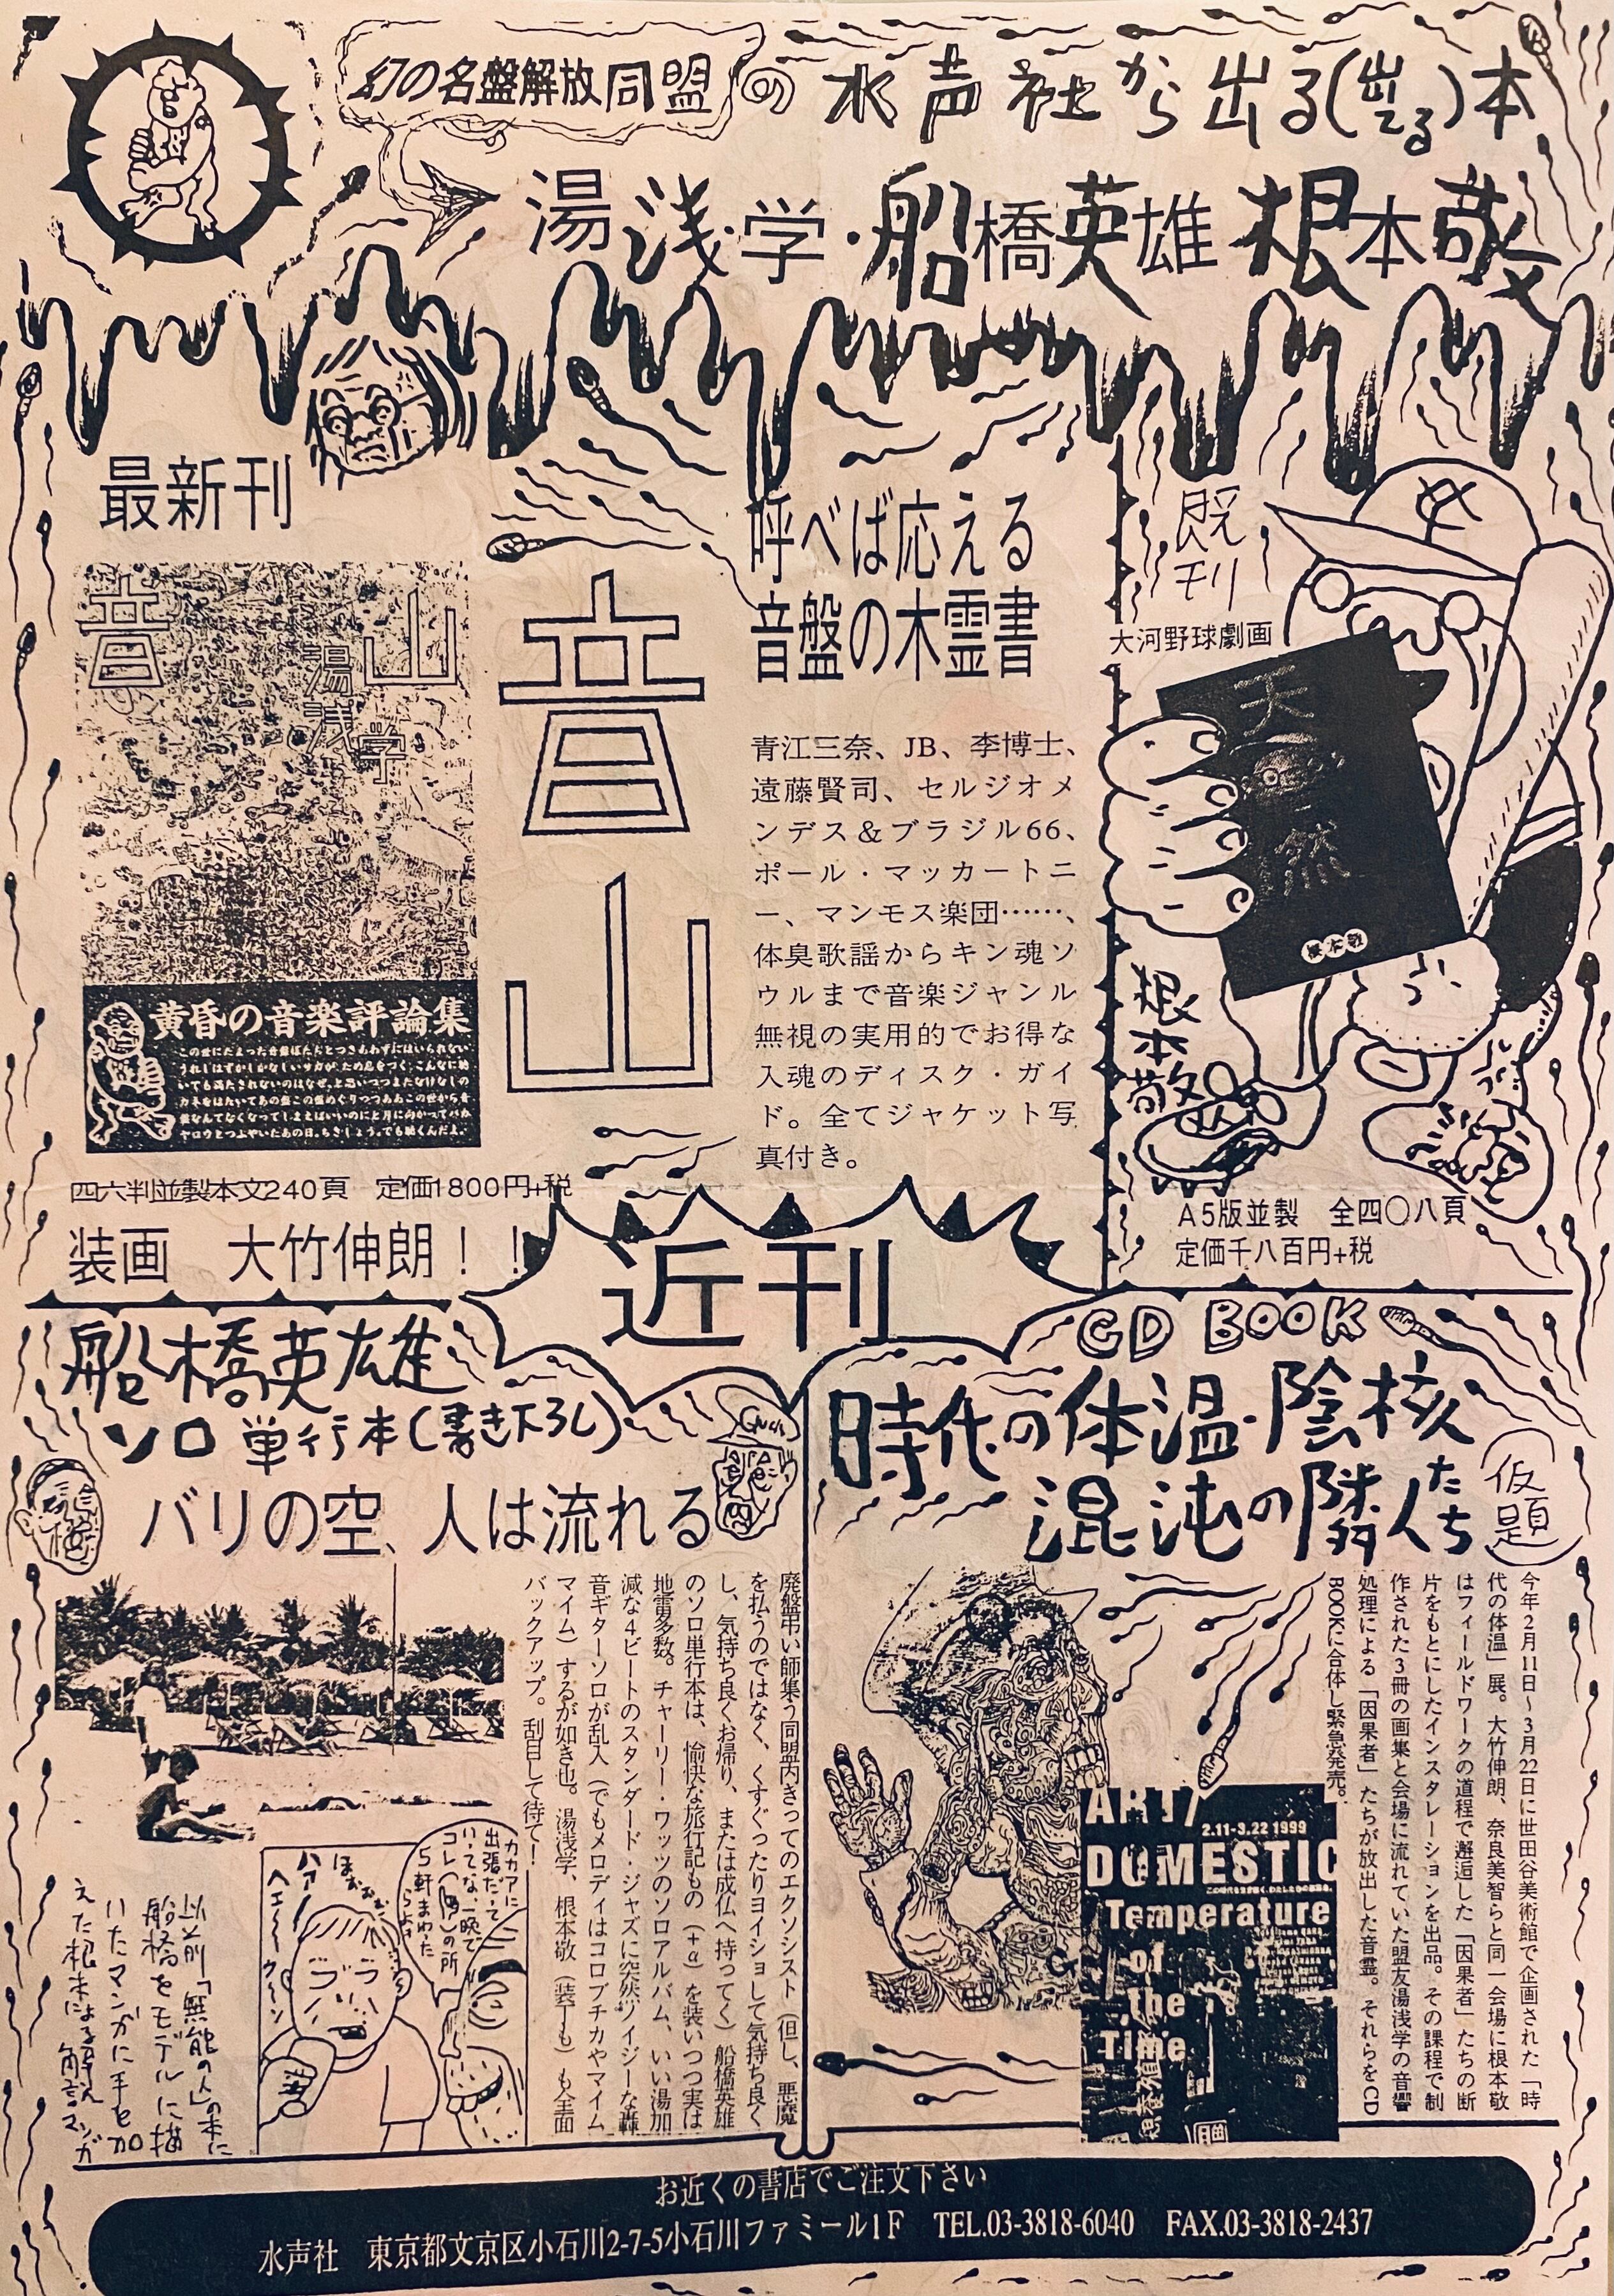 幻の名盤解放同盟の水声社から出る(出てる)本
湯浅学・船橋英雄 根本敬
最新刊
音山
湯浅学
黄昏の音楽評論集
四六判並製本文240頁　定価1800円+税
装画　大竹伸朗！！
音山
呼べば応える
音盤の木霊書
青江三奈、JB、李博士、
遠藤賢司、セルジオメ
ンデス＆ブラジル66、
ポール・マッカートニ
ー、マンモス楽団……、
体臭歌謡からキン魂ソ
ウルまで音楽ジャンル
無視の実用的でお得な
入魂のディスク・ガイ
ド。全てジャケット写
真付き。
既刊
大河野球劇画
天然
根本敬
根本敬
A5版並製　全四〇八頁
定価千八百円+税
近刊
船橋英雄
ソロ単行本(書き下ろし)
バリの空、人は流れる
廃盤弔い師集う同盟内きってのエクソシスト（但し、悪魔
を払うのではなく、くすぐったりヨイショして気持ち良く
し、気持ち良くお帰り、または成仏へ持ってく）船橋英雄
のソロ単行本は、愉快な旅行記もの（+α）を装いつつ実は
地雷多数。チャーリー・ワッツのソロアルバム、いい湯加
減な4ビートのスタンダード・ジャズに突然ノイジーな轟
音ギターソロが乱入（でもメロディはコロブチカやマイム
マイム）するが如き也。湯浅学、根本敬（装丁も）も全面
バックアップ。刮目して待て！
カカアに
出張だって
いってな、一晩で
コレの所
5軒まわった
ほぉ
ハァー
ヘェー
以前「無能の人」の本に
船橋をモデルに描
いたマンガに手を加
えた根本による解説マンガ
CD BOOK
時代の体温・陰核
混沌の隣人たち
(仮題)
今年2月11日～3月22日に世田谷美術館で企画された「時
代の体温」展。大竹伸朗、奈良美智らと同一会場に根本敬
はフィールドワークの道程で邂逅した「因果者」たちの断
片をもとにしたインスタレーションを出品。その課程で制
作された3冊の画集と会場に流れていた盟友湯浅学の音響
処理による「因果者」たちが放出した音霊。それらをCD
BOOKに合体し緊急発売。
ART/
2.11-3.22 1999
DOMESTIC
Temperature
of
the
Time
お近くの書店でご注文下さい
水声社　東京都文京区小石川2-7-5小石川ファミール1F　TEL.03-3818-6040　FAX.03-3818-2437